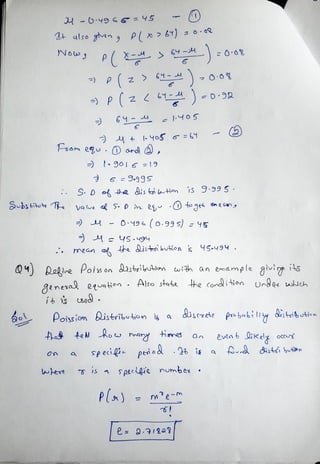 μ - 0.496 σ = 45 — ①
It also given, P(x > 64) = 0.08
Now, P( x-μ/σ > 64-μ/σ ) = 0.08
⇒ P( z > 64-μ/σ ) = 0.08
⇒ P( z < 64-μ/σ ) = 0.92
⇒ 64-μ/σ = 1.405
⇒ μ + 1.405 σ = 64 — ②
From equ. ① and ②,
⇒ 1.901 σ = 19
⇒ σ = 9.995
∴ S.D of the distribution is 9.995.
Substitute The value of S.D in equ. ① to get mean,
⇒ μ - 0.496 (0.995) = 45
⇒ μ = 45.494
∴ mean of the distribution is 45.494.
Q4) Define Poisson Distribution with an example giving its
general equation. Also state the condition under which
it is used.
Sol. Poission Distribution is a discrete probability distribution
that tell how many times an event likely occur
on a specific period. It is a distribution
where r is a specific number.
P(r) = m^r e^-m / r!
e = 2.71828